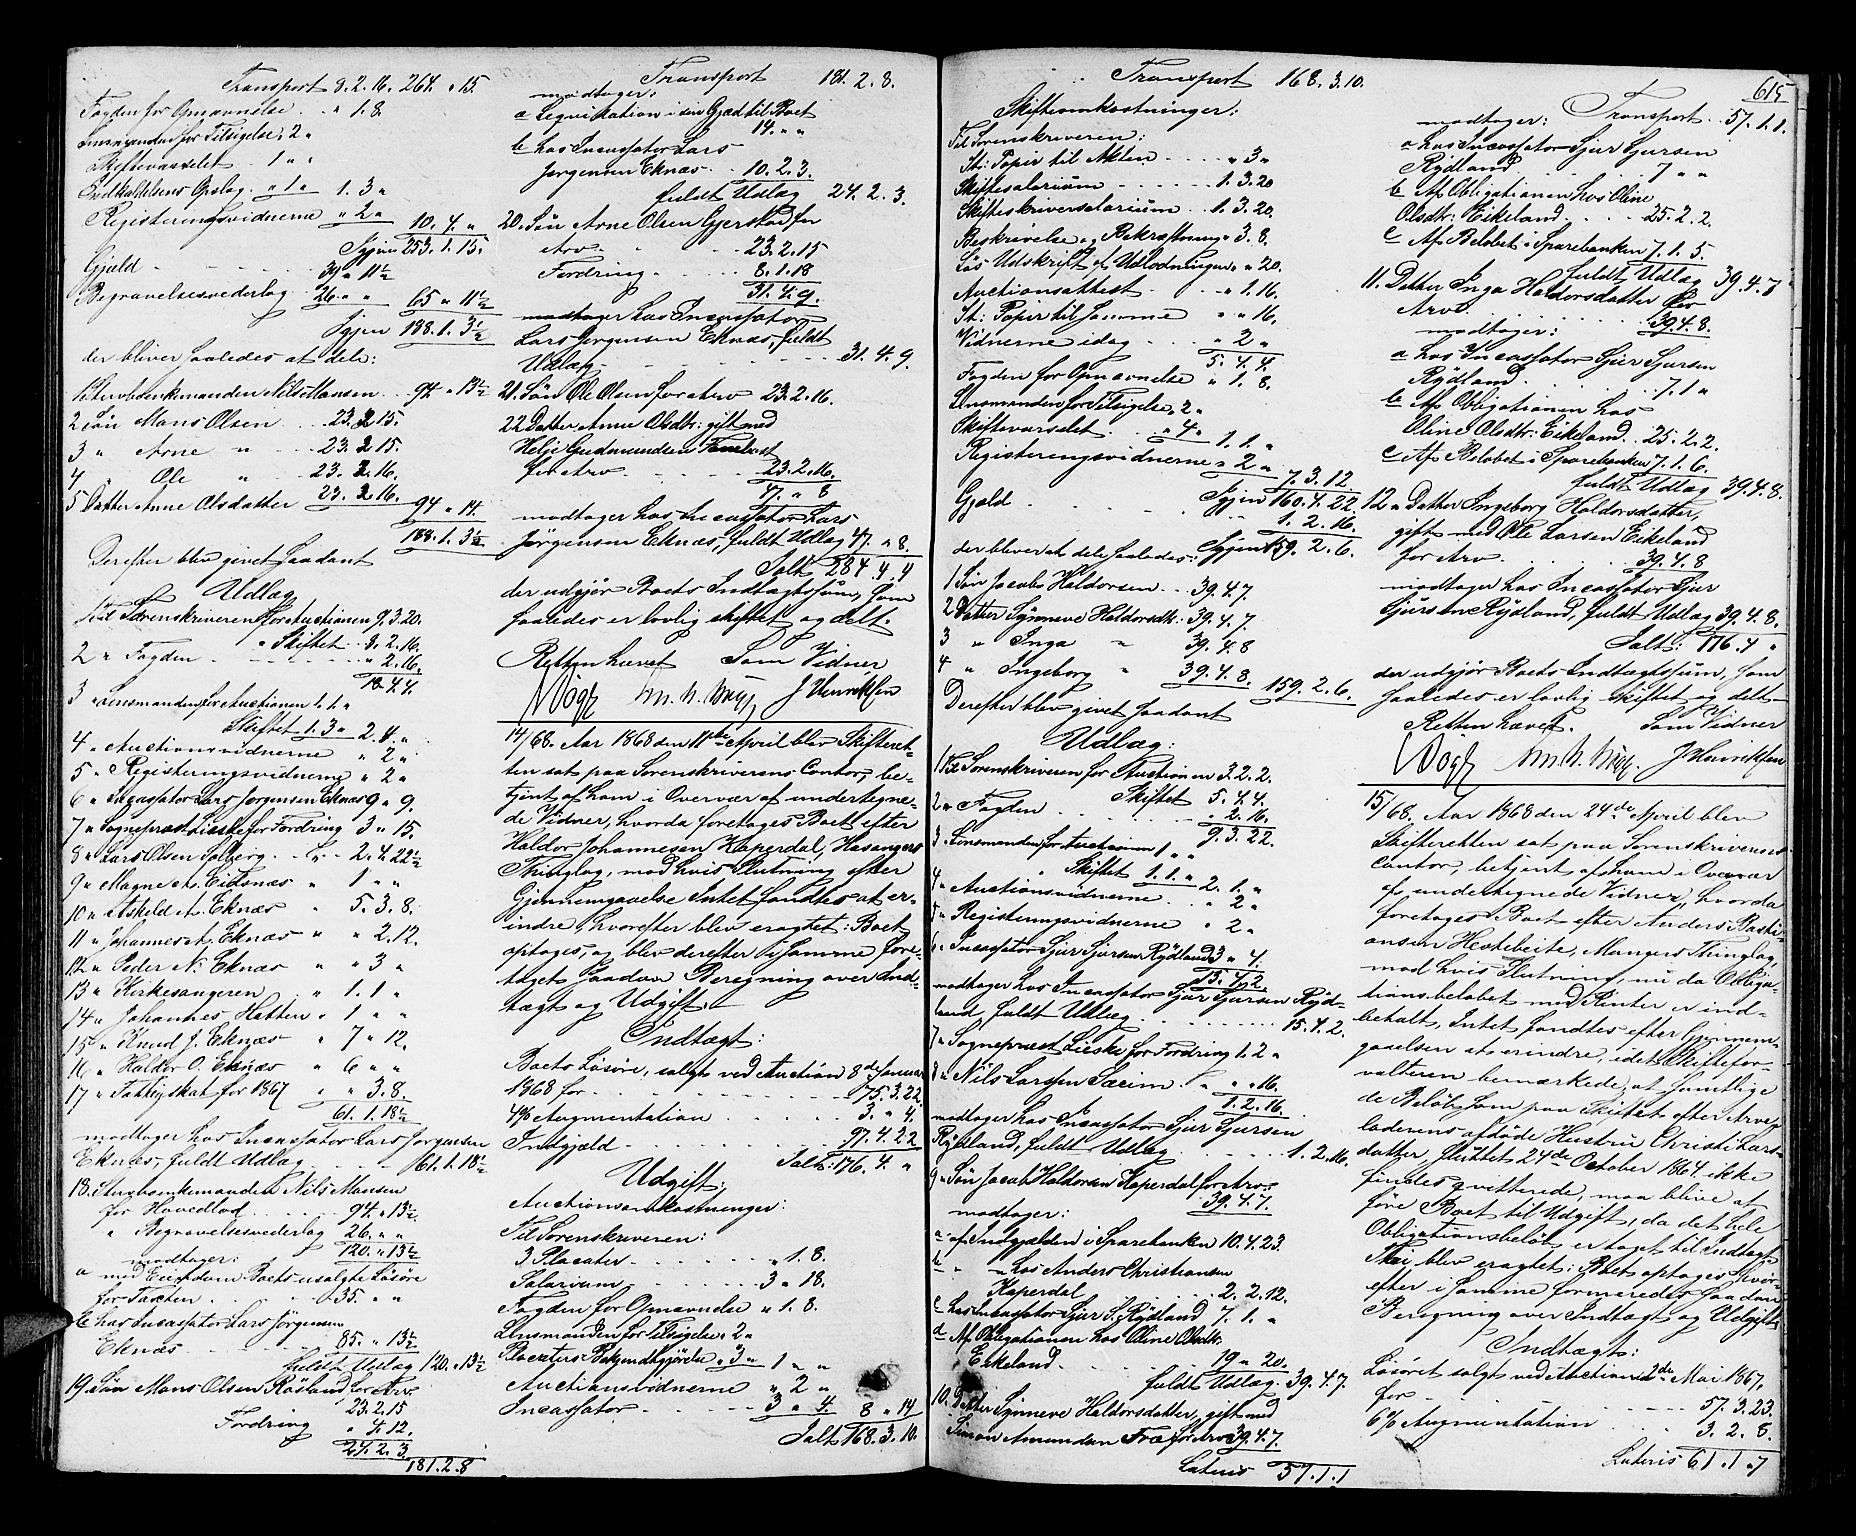 Transport 9. 2. 16. 264. " 15.
Fogden for Opnævnelse . " 1. 8.
Lensmanden for Tilsigelse, 2 "
Skiftevarslet . . 1 " "
Indkaldelsens Opslag . " 1 " 1. 3 "
Registeringsvidnerne " 2 " 10. 4. "
Igjen 253. 1. 15.
Gjæld - - - 39 " 11½
Begravelsesvederlag 26. " " 65 " 11½
Igjen 188. 1. 3½
der bliver saaledes at dele:
1 Stervboenkemanden Nils Mansen . . 94. " 13½
2 Søn Mons Olsen . . . 23. 2. 15.
3 " Arne " . . 23. 2. 15.
4 " Ole " . . 23. 2. 16.
5 Datter Anne Olsdatter 23. 2. 16. 94 " 14.
188. 1. 3½
Derefter blev givet saadant
Udlæg
1 Til Sorenskriveren for Auctionen 9. 3. 20.
" Skiftet . 8. 2. 16.
2 " Fogden - - - " 2. 16.
18. 4. 4.
3 " Lensmanden for Auctionen 1. 1. "
Skiftet 1. 3 " 2. 4. "
4 " Auctionsvidnerne " 2 "
5 " Registeringsvidnerne " 2 "
6 " Incassator Lars Jørgensen Eknæs 9 " 9.
7 " Sognepræst Lieske for Fordring 3 " 15.
8 " Lars Olsen Solberg . . 2. 4. 22½
9 " Magne A. Eidsnæs " 1 " "
10 " Askeld A. Eknæs " 5. 3. 8.
11 " Johannes A. Eknæs " " 2. 12.
12 " Peder N. Eknæs " " 3 "
13 " Kirkesangeren " 1. 1 "
14 " Johannes Hatten " 1 " "
15 " Knud J. Eknæs " 7 " 12.
16 " Haldor O. Eknæs " 6 " "
17 " Fattigskat for 1867 " " 3. 8.
61. 1. 18½
modtager hos Incassator Lars Jørgensen
Eknæs, fuldt Udlæg . . . 61. 1. 18½
18. Stervboenkemanden Nils Mansen
for Hovedlod . . . . 94. " 13½
" Begravelsesvederlag 26. " "
120. " 13½
modtager:
a med Eiendom Boets usolgte Løsøre
for Taxten . . . 35. " "
b hos Incassator Lars Jørgensen
Eknæs . . . 85. " 13½
fuldt Udlæg 120. " 13½
19. Søn Mons Olsen Røsland for Arv
23. 2. 15
Fordring " 4. 12.
24. 2. 3.
181. 2. 8
Transport 181. 2. 8.
modtager:
a Liqvidation i sin Gjæld til Boet
14. " "
b hos Incassator Lars
Jørgensen Eknæs . . 10. 2. 3.
fuldt Udlæg 24. 2. 3.
20. Søn Arne Olsen Gjerstad for
Arv . . . 23. 2. 15
Fordring . . . 8. 1. 18
31. 4. 9.
modtager hos Incassator
Lars Jørgensen Eknæs, fuldt
Udlæg . . . . 31. 4. 9.
21. Søn Ole Olsen for Arv 23. 2. 16.
22. Datter Anne Olsdtr: gift med
Helje Gudmundsen
for Arv . . . 23. 2. 16.
47. " 8
modtager hos Incassator Lars
Jørgensen Eknæs, fuldt Udlæg 47 " 8.
Ialt 284. 4. 4
der udgjør Boets Indtægtssum, som
saaledes er lovlig skiftet og delt.
Retten hævet Som Vidner,
Vogt J Henriksen
14/68. Aar 1868 den 11te April blev Skifteret-
ten sat paa Sorenskriverens Contor, be-
tjent af ham i Overvær af undertegne-
de Vidner, hvorda foretoges Boet efter
Haldor Johannesen Kaperdal, Hosanger
Thinglag, mod hvis Slutning efter
Gjennemgaaelse Intet fandtes at er-
indre, hvorefter blev eragtet: Boet
optages, og blev derefter i samme fore-
taget saadan Beregning over Ind-
tægt og Udgift.
Indtægt:
Boets Løsøre, solgt ved Auction 8de Januar
1868 for . . . . . 75. 3. 22.
4% Augmentation . . . 3. " 4.
Indgjæld . . . . . 97. 4. 22
Ialt: 176. 4. "
Udgift:
Auctionsomkostninger:
Til Sorenskriveren:
3 Placater . . . . " 1. 8.
Salarium . . . . 3 " 18.
Fogden for Opnævnelse " 1. 8.
Lensmanden for Tilsigelse " 2 "
Placaters Bekjendtgjørelse " 3 " 1 " "
Auctionsvidnerne " 2 "
Incassator . . . . 3 " 4. 8 " 14
Ialt 168. 3. 10.
Transport 168. 3. 10.
Skifteomkostninger:
Til Sorenskriveren:
St: Papir til Akten . . . " 3 "
Skiftesalarium . . . . 1. 3. 20
Skifteskriversalarium . . 1. 3. 20.
Beskrivelse og Bekræftning " 3. 8.
Løs Udskrift af Udlodningen " " 20.
Auctionsattest . . . " 1. 16.
St: Papir til samme " " 16.
Vidnerne idag . . . " 2 "
5. 4. 4.
Fogden for Opnævnelse " 1. 8.
Lensmanden for Tilsigelse, 2 "
Skiftevarslet . . . " 4 " 1. 1. "
Registeringsvidnerne " 2 " 7. 3. 12.
Igjen 160. 4. 22.
Gjæld . . . . . 1. 2. 16.
der bliver at dele saaledes: Igjen 159. 2. 6.
1 Søn Jacob Haldorsen . . 39. 4. 7
2 Datter Synneve Haldorsdtr . 39. 4. 7.
3 " Inga " 39. 4. 8
4 " Ingeborg " 39. 4. 8. 159. 2. 6.
Derefter blev givet saadant
Udlæg:
1 Til Sorenskriveren for Auctionen 3. 2. 2.
Skiftet 5. 4. 4.
2 " Fogden . . . . " 2. 16.
9. 3. 22.
3. Lensmanden for Auctionen 1 " "
" Skiftet 1. 1. " 2. 1. "
4 " Auctionsvidnerne . . . " 2 "
5 " Registeringsvidnerne " 2 "
6 " Incassator Sjur Sjursen Rydland 3 " 4.
15. 4. 2.
modtager hos Incassator Sjur Sjursen Ryd-
land, fuldt Udlæg . . . . . 15. 4. 2.
7 " Sognepræst Lieske for Fordring 1. 2 "
8 " Nils Larsen Sæeim . . " " " 16.
1. 2. 16.
modtager hos Incassator Sjur Sjursen
Rydland, fuldt Udlæg . . . . 1. 2. 16.
9 " Søn Jacob Haldorsen Kaperdal for Arv:
39. 4. 7.
modtager:
a af Indgjælden i Sparebanken 10. 4. 23.
b " " hos Anders Christiansen
Kaperdal . . . . 2. 2. 12.
c hos Incassator Sjur S. Rydland 7. 1. "
d Af Obligationen hos Oline Olsdtr.
Eikeland . . . . 19 " 20.
fuldt Udlæg . 39. 4. 7
10. Datter Synneve Haldorsdatter, gift med
Simon Amundsen Træ for Arv 39. 4. 7.
Lateris 57. 1. 1
615
modtager: Transport . . 57. 1. 1.
a hos Incassator Sjur Sjursen
Rydland . . . . 7 " "
b Af Obligationen hos Oline
Olsdtr: Eikeland . . . 25. 2. 2.
c Af Beløbet i Sparebanken 7. 1. 5.
fuldt Udlæg 39. 4. 7
11. Datter Inga Haldorsdatter for
Arv . . . . . 39. 4. 8.
modtager:
a hos Incassator Sjur Sjursen
Rydland . . . . . 7. 1 "
b Af Obligationen hos
Oline Olsdtr: Eikeland . . 25. 2. 2.
c Af Beløbet i Sparebanken 7. 1. 6.
fuldt Udlæg 39. 4. 8.
12 " Datter Ingeborg Haldorsdatter,
gift med Ole Larsen Eikeland
for Arv . . . . . 39. 4. 8
modtager hos Incassator Sjur
Sjursen Rydland, fuldt Udlæg 39. 4. 8.
Ialt: 176. 4 "
der udgjør Boets Indtægtssum, som
saaledes er lovlig skiftet og delt
Retten hævet. Som Vidner
Vogt J Henriksen
15/68. Aar 1868 den 24de April blev
Skifteretten sat paa Sorenskriverens
Contor, betjent af ham i Overvær
af undertegnede Vidner, hvorda
foretoges Boet efter Anders Basti-
ansen Hestebeite, Mangers Thinglag,
mod hvis Slutning, nu da Obliga-
tionsbeløbet med Renter er ind-
betalt, Intet fandtes efter Gjennem-
gaaelsen at erindre, idet Skiftefor-
valteren bemærkede, at samtlige
de Beløb, som paa Skiftet efter Arve-
laderens afdøde Hustru Christi Lars-
datter, sluttet 24de October 1864 ikke
findes qvitterede, maa blive at
føre Boet til Udgift, da det hele
Obligationsbeløb er taget til Indtægt.
Thi blev eragtet: Boet optages, hvor-
efter i samme formeredes saadan
Beregning over Indtægt og Udgift:
Indtægt:
Løsøret solgt ved Auction 2de Mai 1867,
for . . . . . . 57. 3. 23.
6% Augmentation . . . 3. 2. 8.
Lateris 61. 1. 7